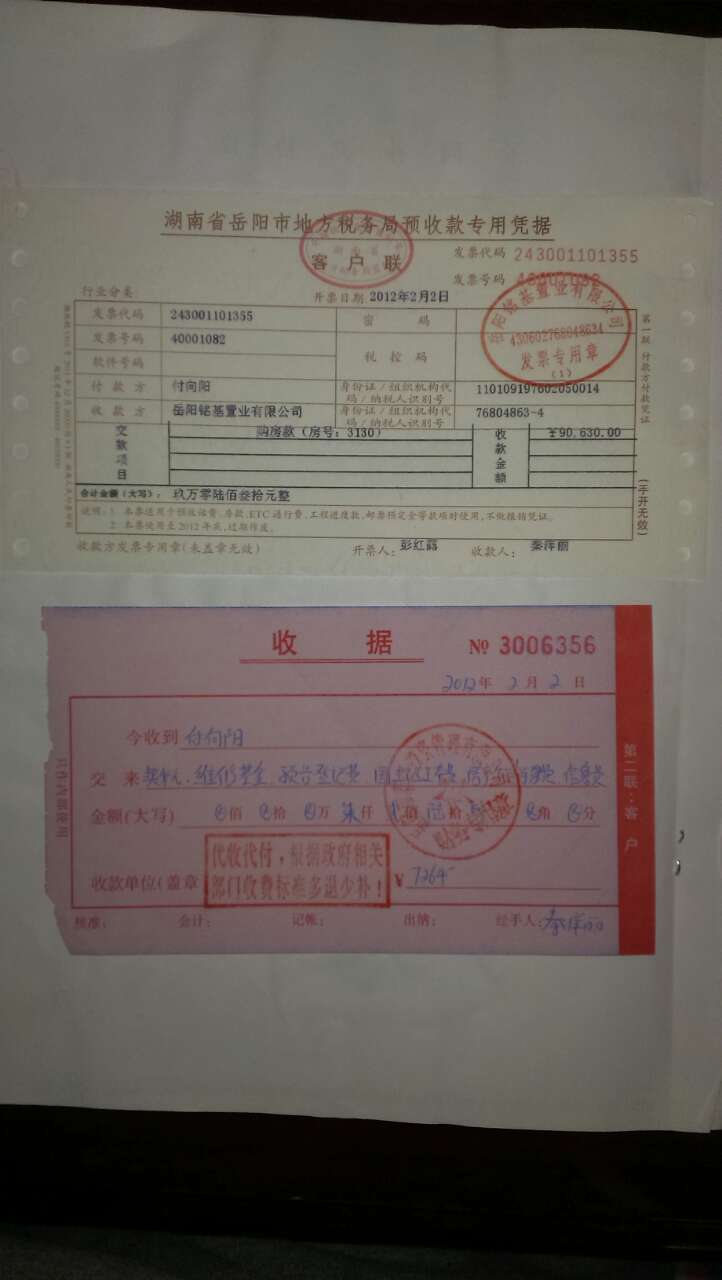 湖南省岳阳市地方税务局预收款专用凭据
客户联
发票代码 243001101355
发票号码
行业分类:
开票日期 2012年2月2日
发票代码 243001101355 密 码
发票号码 40001082 税 控 码
软件号码
付 款 方 付向阳 身份证/组织机构代码/纳税人识别号 110109197602050014
收 款 方 岳阳铭基置业有限公司 身份证/组织机构代码/纳税人识别号 76804863-4
交款项目 购房款(房号:3130) 收款金额 ￥90,630.00
合计金额(大写): 玖万零陆佰叁拾元整
说明: 1、本票适用于预收话费、存款、ETC通行费、工程进度款、邮票预定金等款项时使用,不做报销凭证。
2、本票使用至2012年底,过期作废。
收款方发票专用章(未盖章无效) 开票人: 彭红霞 收款人: 秦萍丽
第一联 付款方付款凭证
(手开无效)
岳阳铭基置业有限公司
430602768048634
发票专用章
(1)
收 据 № 3006356
2012年 2 月 2 日
今收到 付向阳
交 来 契税、维修基金、预告登记费、国土证工本费、
金额(大写) 佰 拾 万 柒仟 佰 陆拾 角 分
代收代付,根据政府相关
部门收费标准多退少补!
收款单位(盖章 ￥ 7264
核准: 会计: 记帐: 出纳: 经手人: 秦萍丽
第二联:客户
只作内部使用